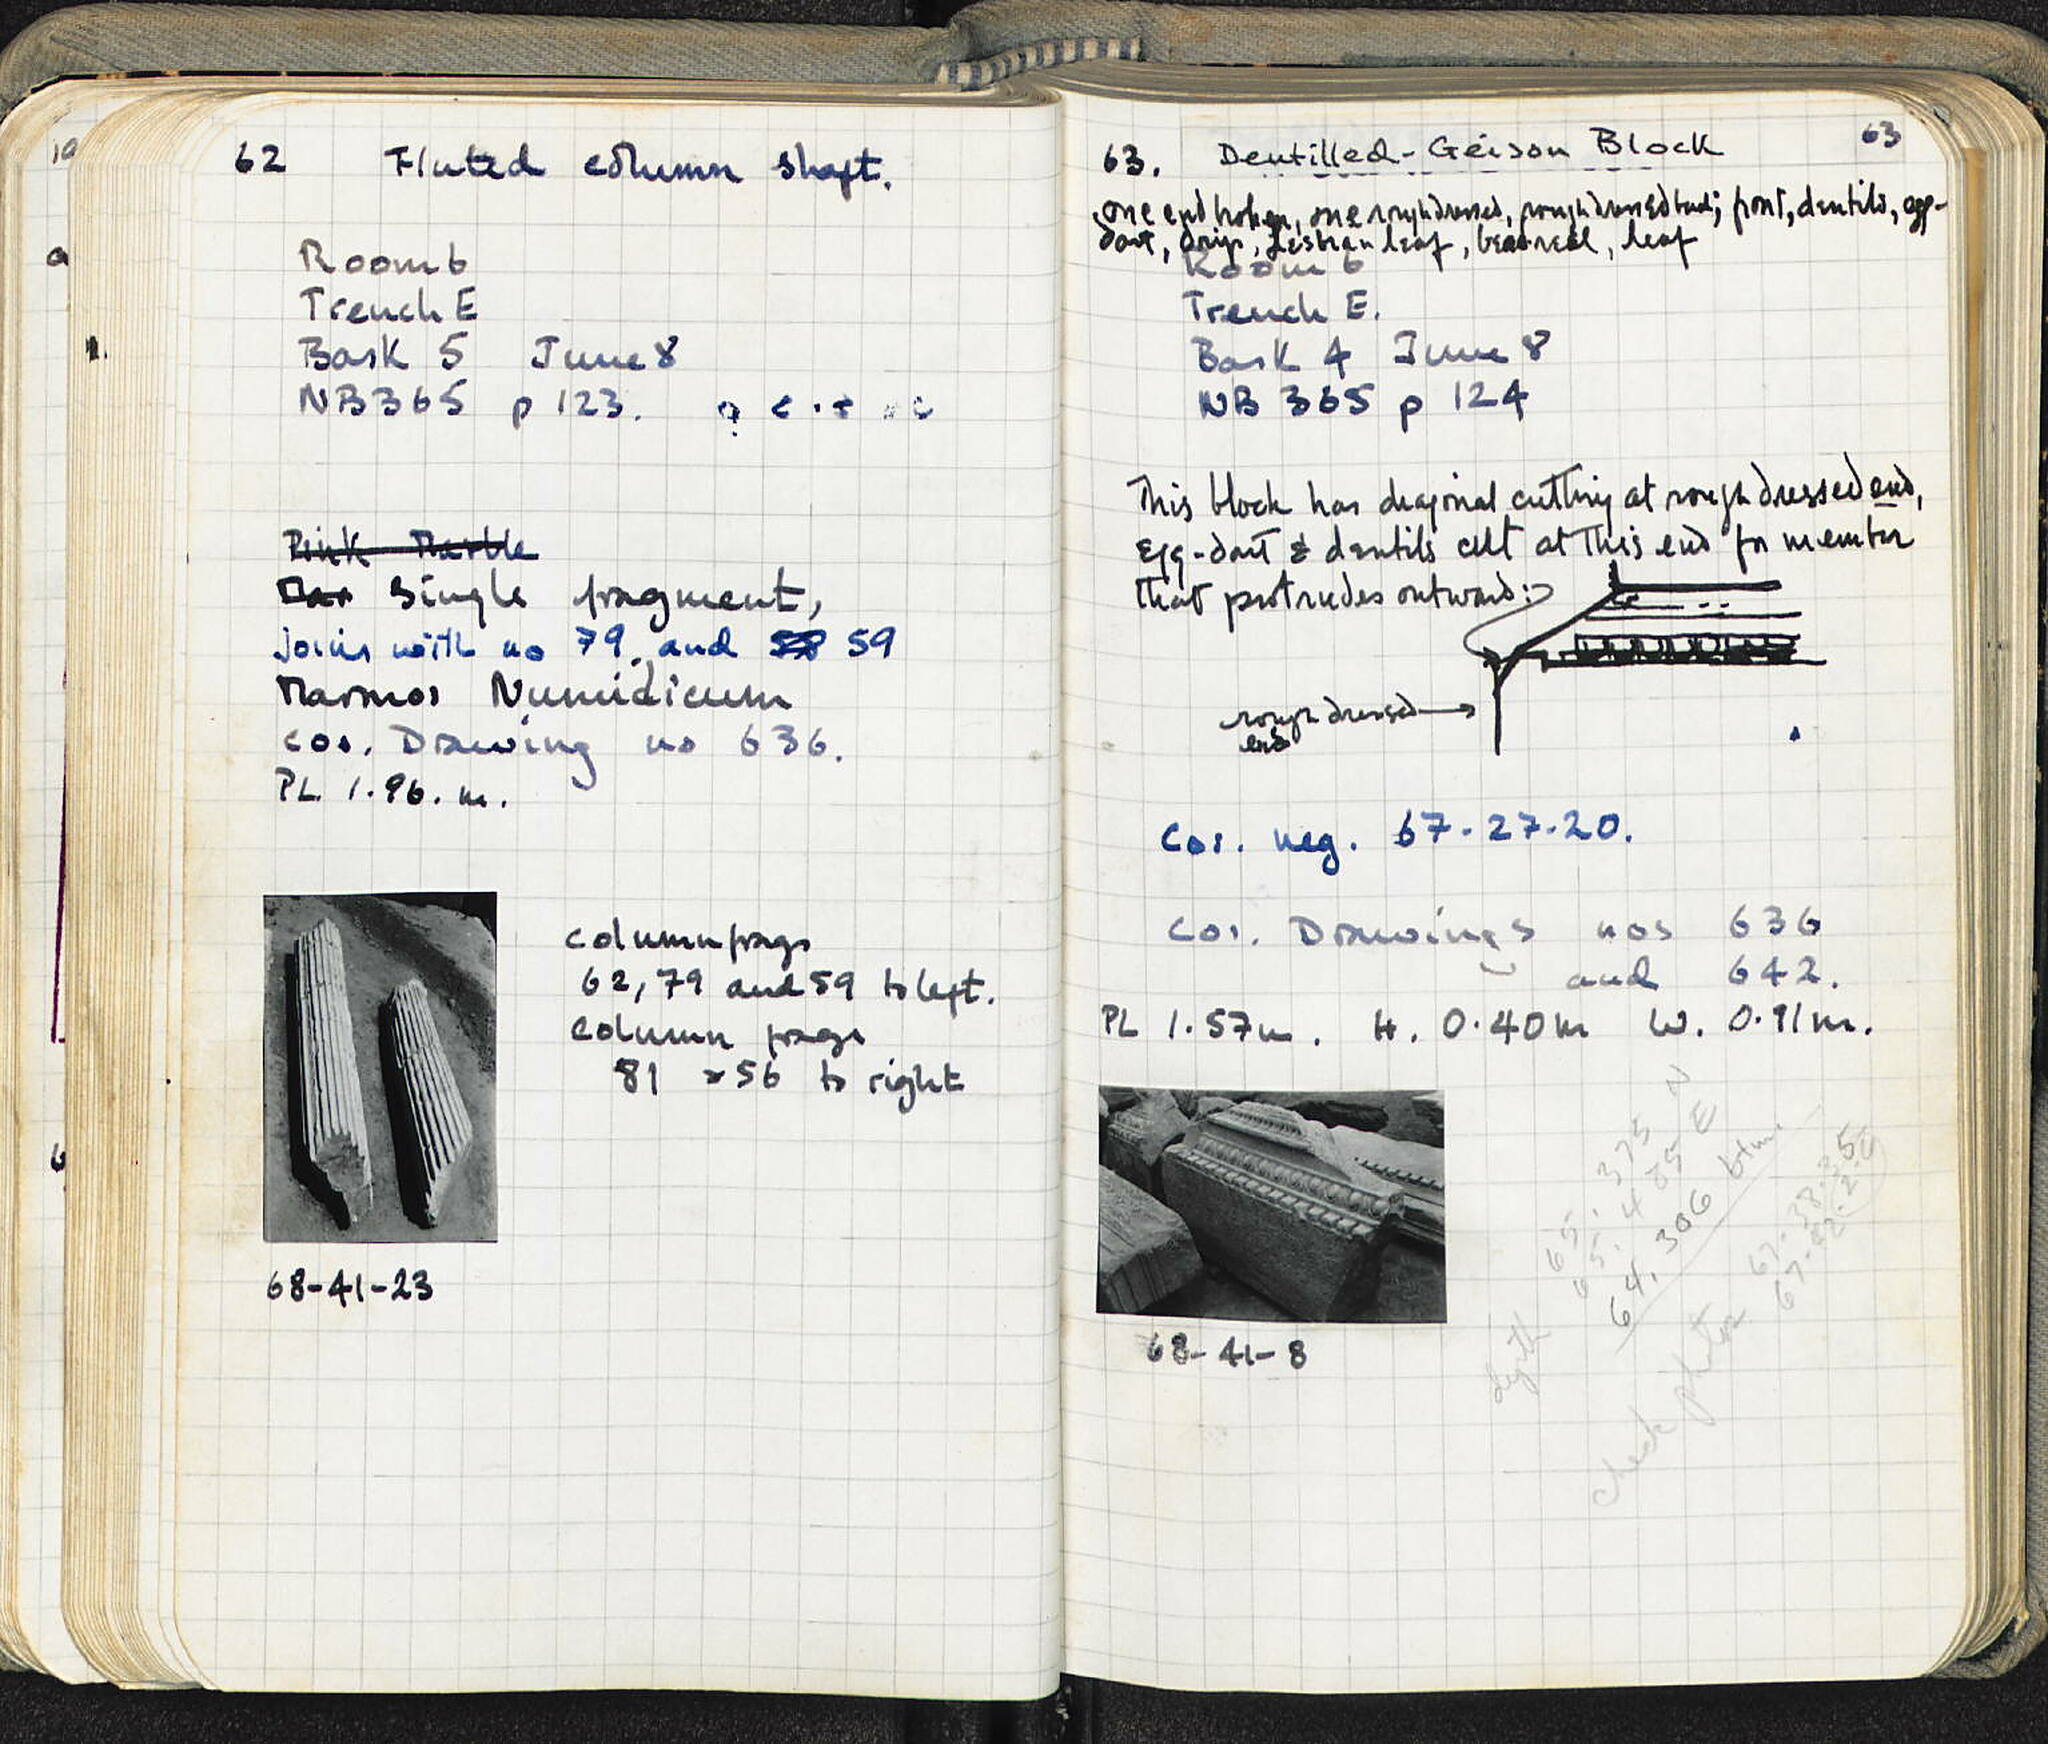 62 Fluted column shaft.
Room 6
Trench E
Bask 5 June 8
NB 365 p 123.
Pink Marble
Mar Single fragment,
joins with no 79, and 58 59
Marmor Numidicum
Cor. Drawing no 636.
PL. 1.96. m.
column frags
62, 79 and 59 to left.
column frags
81 & 56 to right
68-41-23
63
63. Dentilled-Geison Block
one end broken, one rough dressed, rough dressed back; front, dentils, egg-
dart, drip, Lesbian leaf, bead-reel, leaf
Room 6
Trench E.
Bask 4 June 8
NB 365 p 124
This block has diagonal cutting at rough dressed end,
Egg-dart & dentils cut at this end for member
that protrudes outward:
rough dressed
end
Cor. neg. 67-27-20.
Cor. Drawings nos 636
and 642.
PL 1.57m. H. 0.40m W. 0.91m.
65.375 N
65.485 E
64.306 btm.
check photos
67-38-35
68-41-8